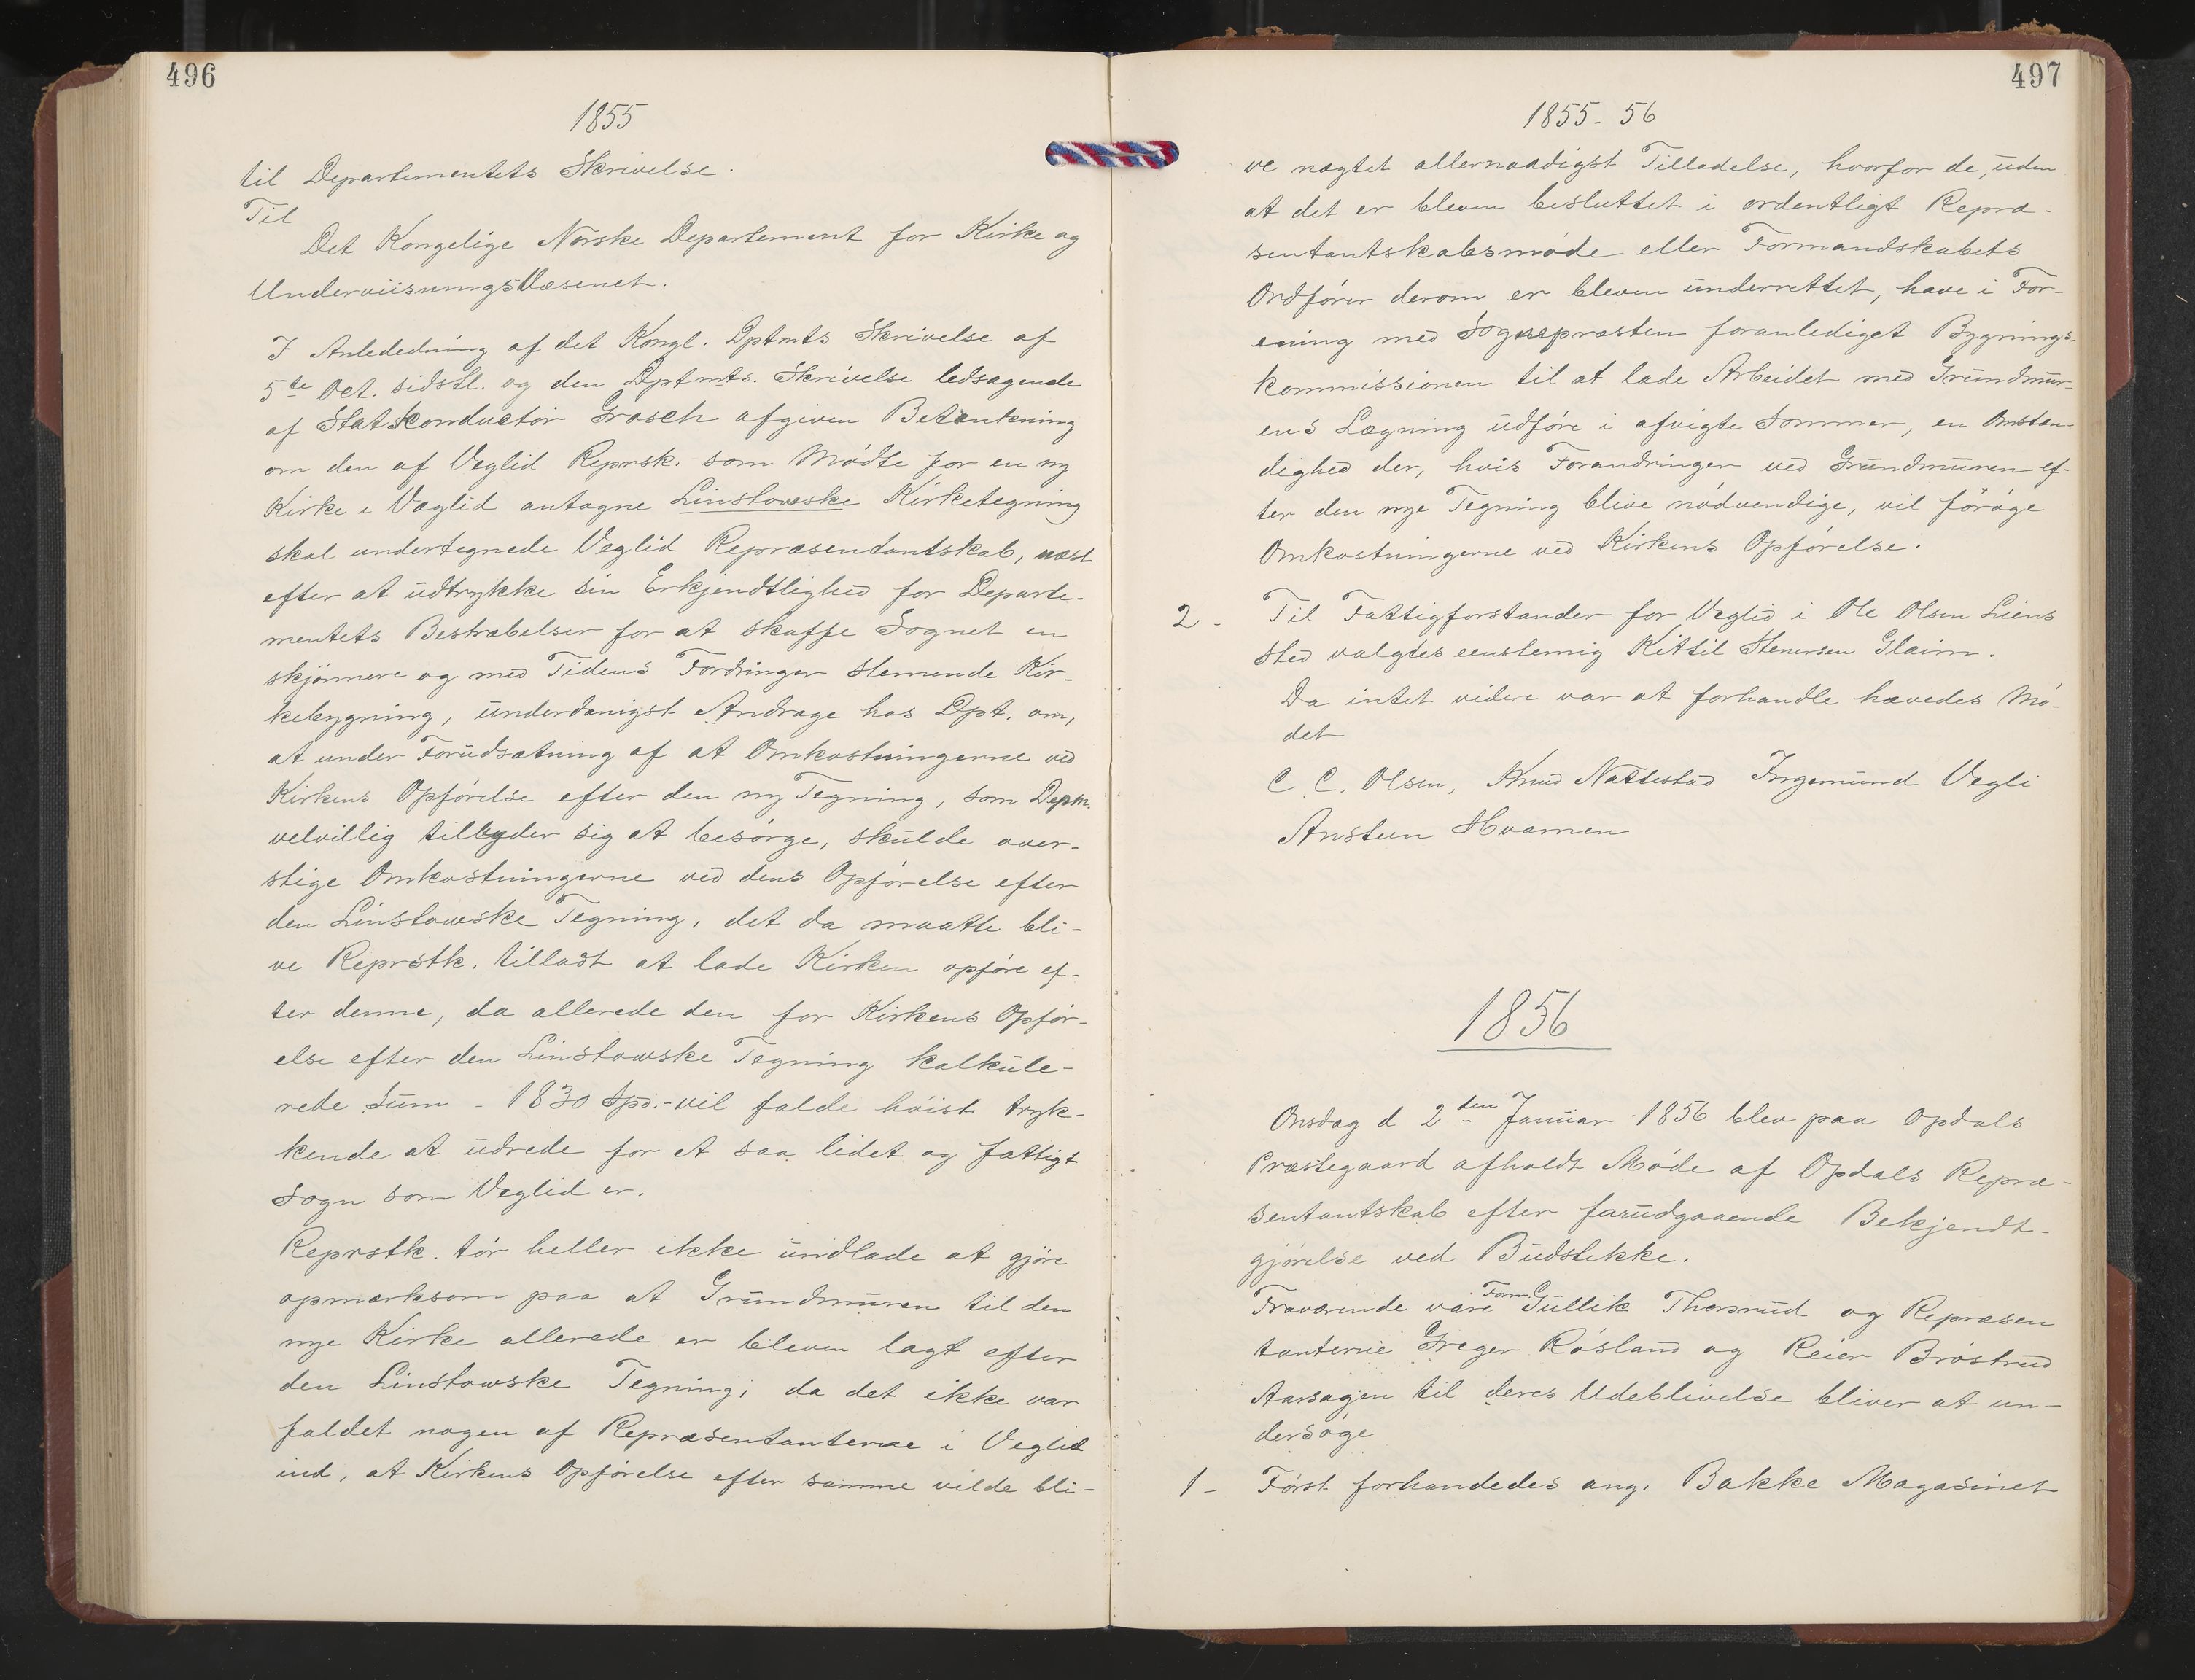 496
1855
til Departementets Skrivelse.
Til
Det Kongelige Norske Departement for Kirke og
UnderviisningsVæsenet.
I Anlededning af det Kongl. Dptmts Skrivelse af
5te Oct. sidstl. og den Dptmts. Skrivelse ledsagende
af Statskonductör Grosch afgiven Betænkning
om den af Veglid Reprsk. som Mödte for en ny
Kirke i Væglid antagne Linstowske Kirketegning
skal undertegnede Veglid Repræsentantskab, næst
efter at udtrykke sin Erkjendtlighed for Departe-
mentets Bestræbelser for at skaffe Sognet en
skjönnere og med Tidens Fordringer stemende Kir-
kebygning, underdanigst Andrage hos Dpt. om,
at under Forudsætning af at Omkostningerne ved
Kirkens Opförelse efter den ny Tegning, som Deptm.
velvillig tilbyder sig at besörge, skulde over-
stige Omkostningerne ved dens Opförelse efter
den Linstowske Tegning, det da maatte bli-
ve Reprstk. tilladt at lade Kirken opföre ef-
ter denne, da allerede den for Kirkens Opför-
else efter den Linstowske Tegning kalkule-
rede Sum - 1830 Spd.- vil falde höist tryk-
kende at udrede for et saa lidet og fattigt
Sogn som Veglid er.
Reprstk. tör heller ikke undlade at gjöre
opmærksom paa at Grundmuren til den
nye Kirke allerede er bleven lagt efter
den Linstowske Tegning, da det ikke var
faldet nogen af Repræsentanterne i Veglid
ind, at Kirkens Opförelse efter samme vilde bli-
497
1855-56
ve nægtet allernaadigst Tilladelse, hvorfor de, uden
at det er bleven besluttet i ordentligt Repræ-
sentantskabsmöde eller Formandskabets
Ordförer derom er bleven underrettet, have i For-
ening med Sognepræsten foranlediget Bygnings-
kommissionen til at lade Arbeidet med Grundmur-
ens Lægning udföre i afvigte Sommer, en Omstæn-
dighed der, hvis Forandringer ved Grundmuren ef-
ter den nye Tegning blive nödvendige, vil föröge
Omkostningerne ved Kirkens Opförelse.
2 - Til Fattigforstander for Veglid i Ole Olsen Liens
Sted valgtes eenstemig Kittil Stenersen Glaim.
Da intet videre var at forhandle hævedes Mö-
det
C. C. Olsen, Knud Nattestad Ingemund Vegli
Ansteen Hvamen
1856
Onsdag d 2den Januar 1856 blev paa Opdals
Præstegaard afholdt Möde af Opdals Repræ-
sentantskab efter forudgaaende Bekjendt-
gjörelse ved Budstikke.
Fraværende vare Form. Gullik Thorsrud og Repræsen
tanterne Greger Rösland og Reier Bröstrud
Aarsagen til deres Udeblivelse bliver at un-
dersöge
1 - Först forhandedes ang. Bakke Magasinet